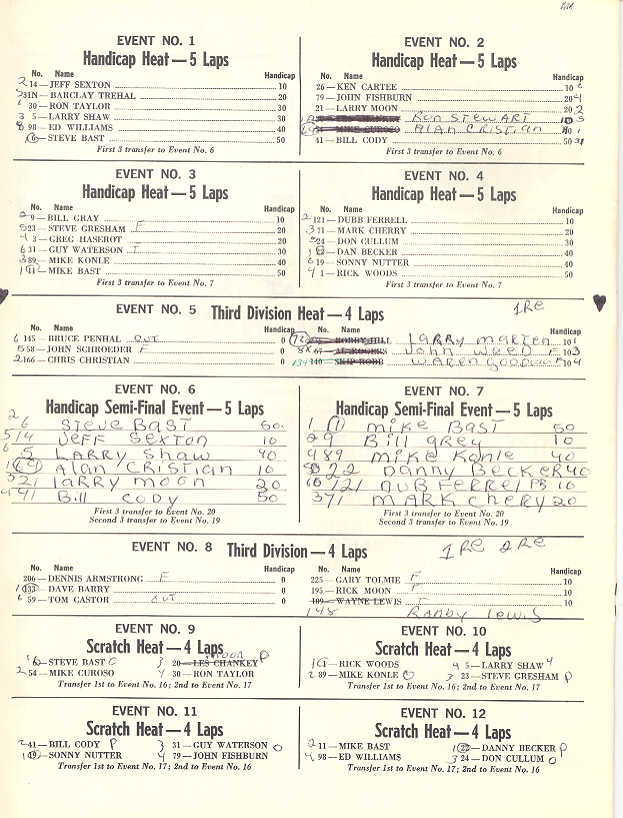 EVENT NO. 1
Handicap Heat — 5 Laps
No. Name Handicap
2 14—JEFF SEXTON 10
5 31N—BARCLAY TREHAL 20
30—RON TAYLOR 30
3 5—LARRY SHAW 30
98—ED WILLIAMS 40
6—STEVE BAST 50
First 3 transfer to Event No. 6
EVENT NO. 2
Handicap Heat — 5 Laps
No. Name Handicap
26—KEN CARTEE 10
79—JOHN FISHBURN 20 4
21—LARRY MOON 20 2
KEN STEWART
MIKE CUROSO ALAN CRISTIAN
41—BILL CODY 50
First 3 transfer to Event No. 6
EVENT NO. 3
Handicap Heat — 5 Laps
No. Name Handicap
2 9—BILL GRAY 10
5 23—STEVE GRESHAM F 20
4 3—GREG HASEROT 20
6 31—GUY WATERSON 30
3 89—MIKE KONLE 40
1 11—MIKE BAST 50
First 3 transfer to Event No. 7
EVENT NO. 4
Handicap Heat — 5 Laps
No. Name Handicap
2 121—DUBB FERRELL 10
3 71—MARK CHERRY 20
5 24—DON CULLUM 30
1 22—DAN BECKER 40
6 19—SONNY NUTTER 40
4 1—RICK WOODS 50
First 3 transfer to Event No. 7
EVENT NO. 5 Third Division Heat — 4 Laps 1 RE
No. Name Handicap
6 145—BRUCE PENHAL OUT 0
5 58—JOHN SCHROEDER F 0
2 166—CHRIS CHRISTIAN 0
No. Name Handicap
72 BOBBY HILL LARRY MARTEN 10 1
8X 67—AL ROGERS JOHN WEED F 10 3
134 140—SKIP ROBB WAREN GOODWIN 10 4
EVENT NO. 6
Handicap Semi-Final Event — 5 Laps
2 6 STEVE BAST 50
5 14 JEFF SEXTON 10
6 5 LARRY SHAW 40
1 ALAN CRISTIAN 10
3 21 LARRY MOON 20
4 41 Bill CODY 50
First 3 transfer to Event No. 20
Second 3 transfer to Event No. 19
EVENT NO. 7
Handicap Semi-Final Event — 5 Laps
1 1 MIKE BAST 50
2 9 Bill GREY 10
4 89 MIKE KONLE 40
22 DANNY BECKER 40
121 DUB FERREL 10
3 71 MARK CHERY 20
First 3 transfer to Event No. 20
Second 3 transfer to Event No. 19
EVENT NO. 8 Third Division — 4 Laps 1 RE 2 RE
No. Name Handicap
206—DENNIS ARMSTRONG F 0
1 133—DAVE BARRY 0
6 59—TOM CASTOR OUT 0
No. Name Handicap
225—GARY TOLMIE F 10
195—RICK MOON F 10
109—WAYNE LEWIS F 10
148 RANDY LEWIS
EVENT NO. 9
Scratch Heat — 4 Laps
1 6—STEVE BAST O 3 20—LES CHANKEY MOON P
2 54—MIKE CUROSO 4 30—RON TAYLOR
Transfer 1st to Event No. 16; 2nd to Event No. 17
EVENT NO. 10
Scratch Heat — 4 Laps
1 1—RICK WOODS 4 5—LARRY SHAW
2 89—MIKE KONLE O 3 23—STEVE GRESHAM P
Transfer 1st to Event No. 16; 2nd to Event No. 17
EVENT NO. 11
Scratch Heat — 4 Laps
2 41—BILL CODY P 3 31—GUY WATERSON O
1 19—SONNY NUTTER 4 79—JOHN FISHBURN
Transfer 1st to Event No. 17; 2nd to Event No. 16
EVENT NO. 12
Scratch Heat — 4 Laps
2 11—MIKE BAST 1 22—DANNY BECKER P
4 98—ED WILLIAMS 3 24—DON CULLUM O
Transfer 1st to Event No. 17; 2nd to Event No. 16